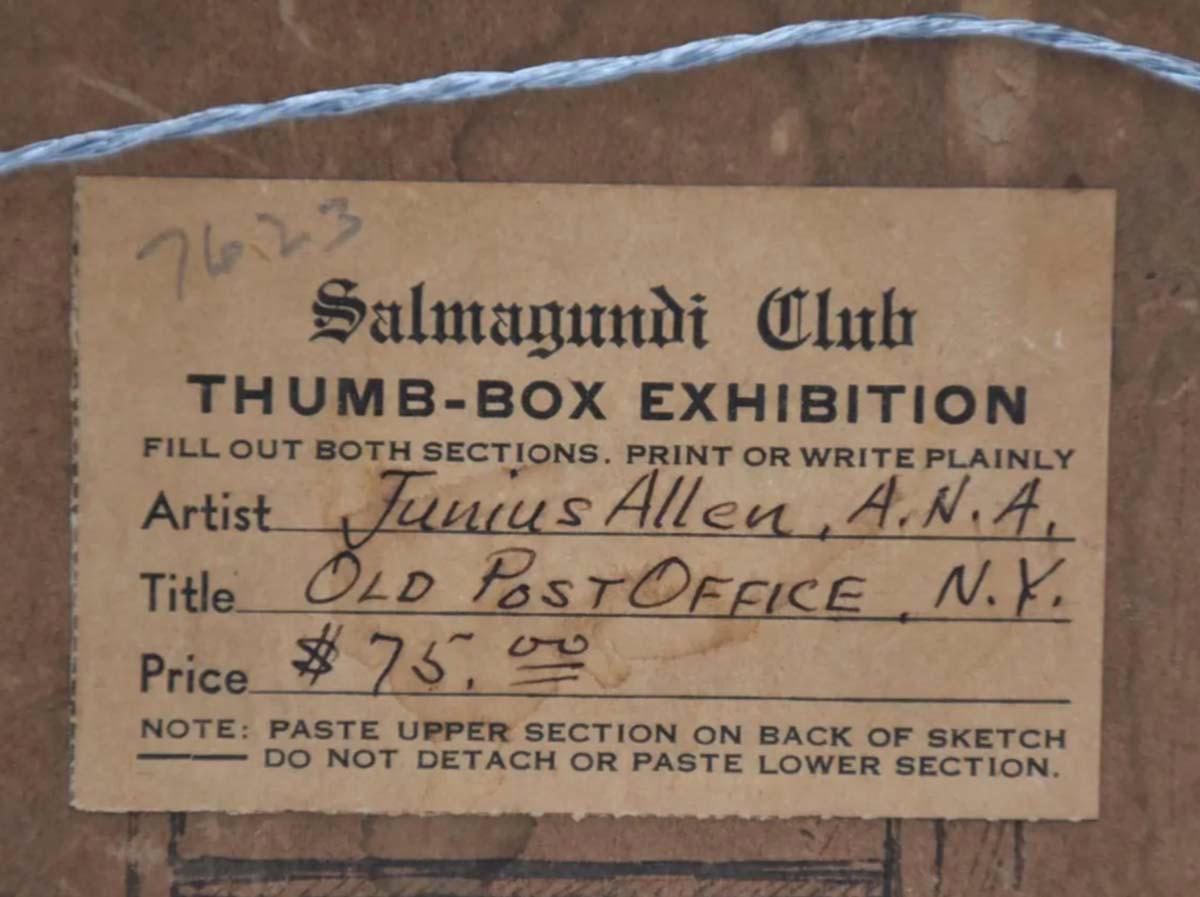 7623
Salmagundi Club
THUMB-BOX EXHIBITION
FILL OUT BOTH SECTIONS. PRINT OR WRITE PLAINLY
Artist Junius Allen, A.N.A.
Title OLD POST OFFICE, N.Y.
Price $75.00
NOTE: PASTE UPPER SECTION ON BACK OF SKETCH
DO NOT DETACH OR PASTE LOWER SECTION.